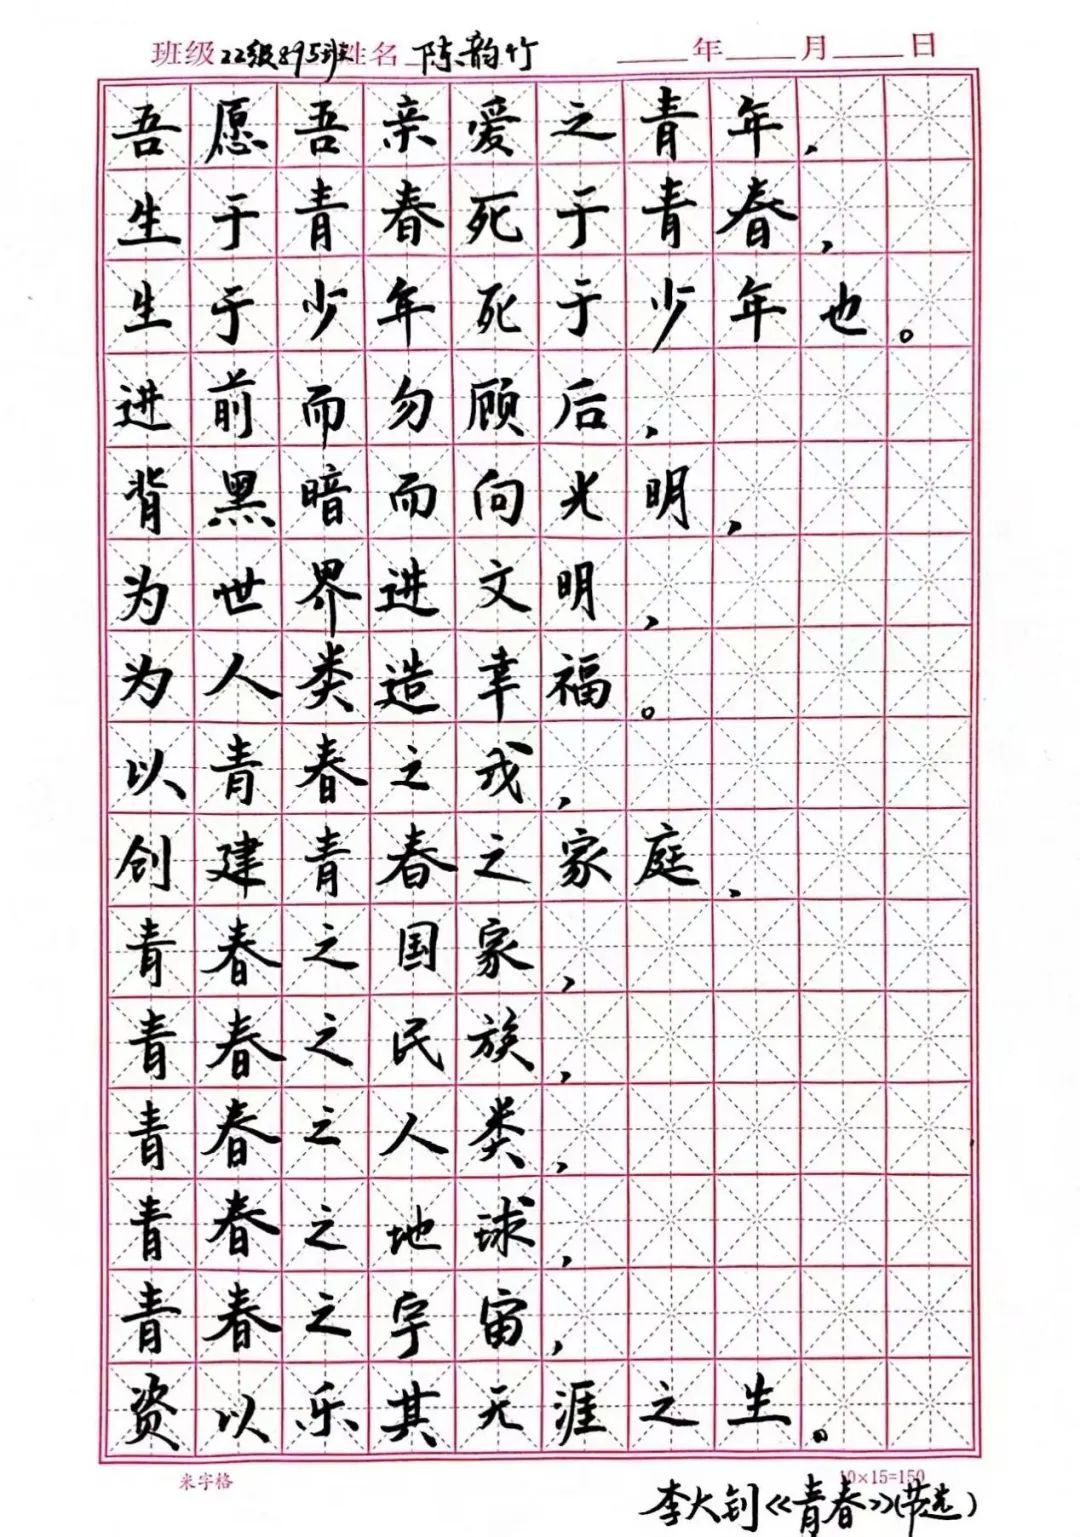 班级 22级895班 姓名 陈韵竹 ____年____月____日
吾愿吾亲爱之青年,
生于青春死于青春,
生于少年死于少年也。
进前而勿顾后,
背黑暗而向光明,
为世界进文明,
为人类造幸福。
以青春之我,
创建青春之家庭,
青春之国家,
青春之民族,
青春之人类,
青春之地球,
青春之宇宙,
资以乐其无涯之生。
米字格 10×15=150
李大钊《青春》(节选)